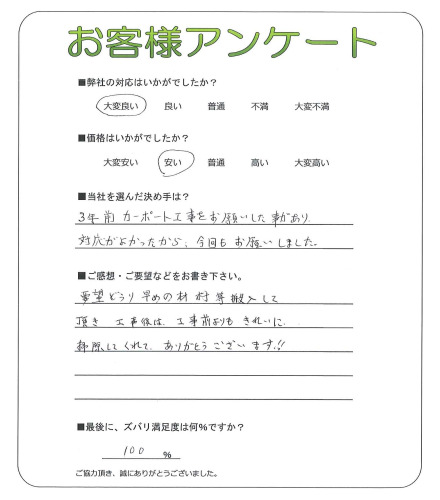 お客様アンケート
■弊社の対応はいかがでしたか?
大変良い 良い 普通 不満 大変不満
■価格はいかがでしたか?
大変安い 安い 普通 高い 大変高い
■当社を選んだ決め手は?
3年前 カーポート工事をお願いした事があり
対応がよかったから、今回もお願いしました。
■ご感想・ご要望などをお書き下さい。
要望どうり 早めの材料等搬入して
頂き 工事後は、工事前よりも きれいに
掃除してくれて、ありがとうございます!!
■最後に、ズバリ満足度は何%ですか?
100 %
ご協力頂き、誠にありがとうございました。